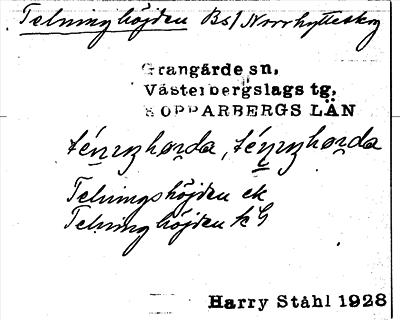 Telninghöjden Bs/ Norrhytteskog
Grangärde sn,
Västerbergslags tg,
KOPPARBERGS LÄN
Telningshöjden ek
Telninghöjden tc G
Harry Ståhl 1928